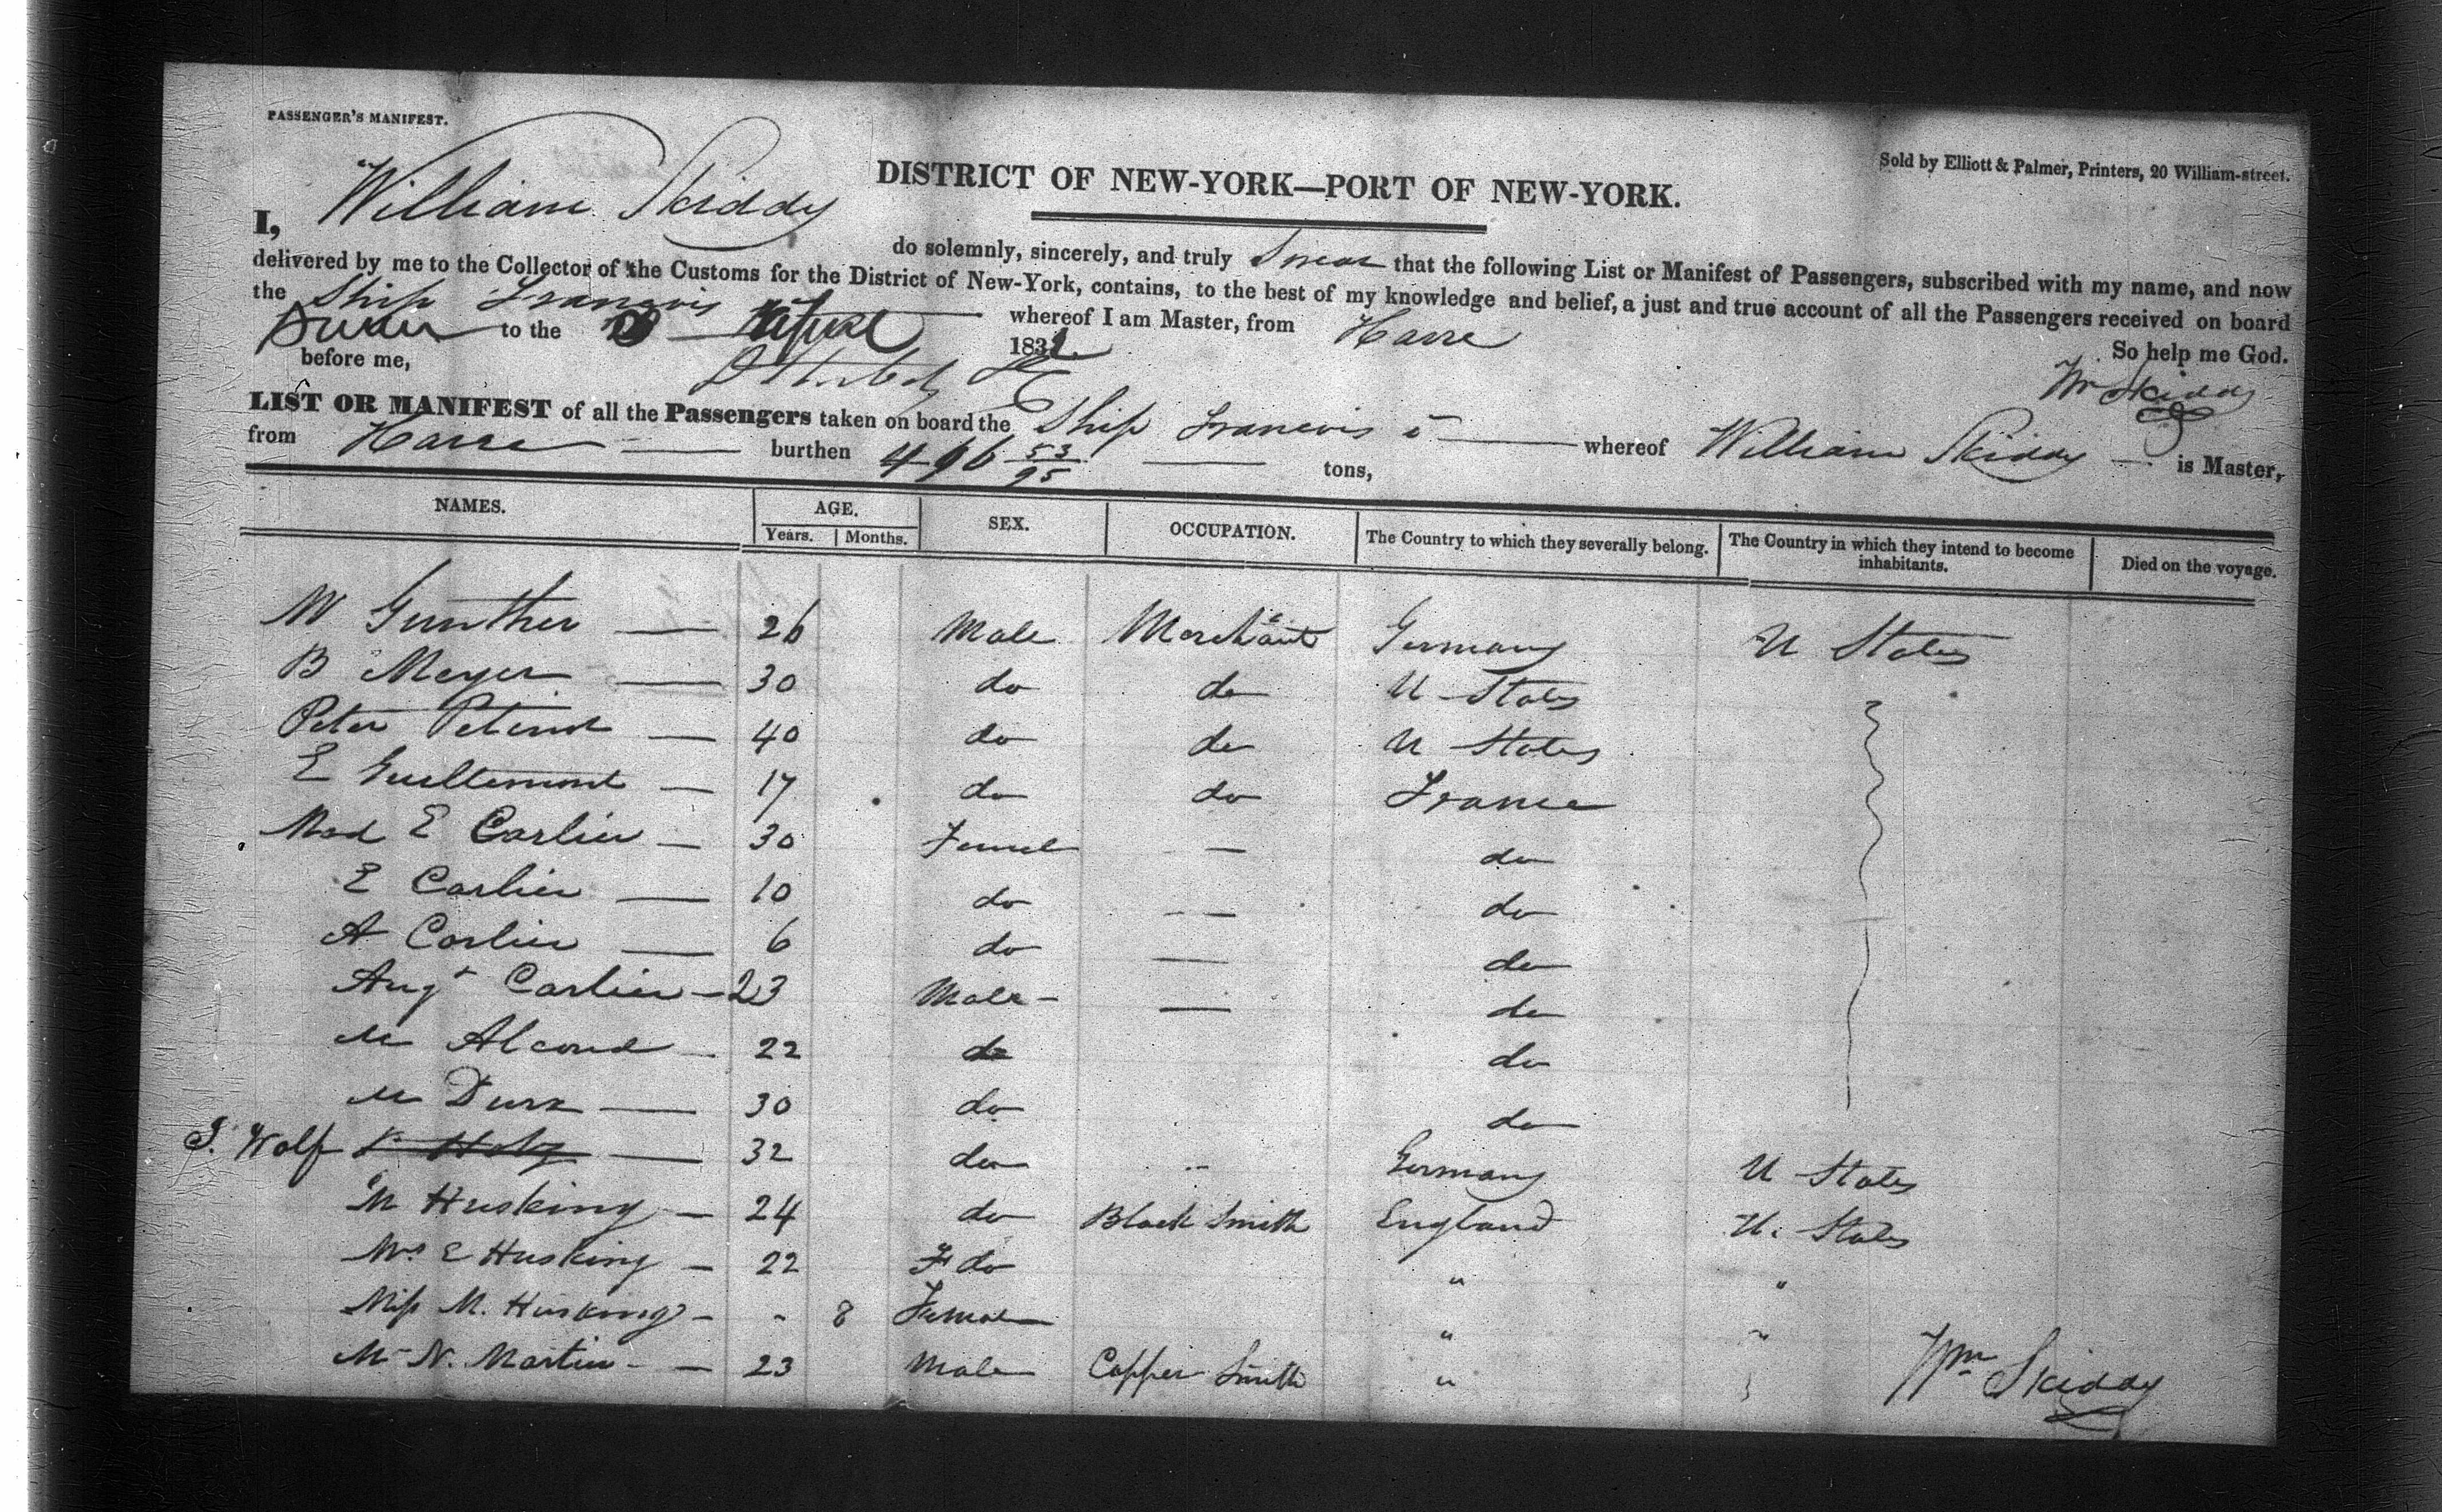 PASSENGER'S MANIFEST.
Sold by Elliott & Palmer, Printers, 20 William-street.
DISTRICT OF NEW-YORK—PORT OF NEW-YORK.
I, William Skiddy do solemnly, sincerely, and truly Swear that the following List or Manifest of Passengers, subscribed with my name, and now
delivered by me to the Collector of the Customs for the District of New-York, contains, to the best of my knowledge and belief, a just and true account of all the Passengers received on board
the Ship Francois whereof I am Master, from Havre
to the 183 So help me God.
before me, Wm Skiddy
LIST OR MANIFEST of all the Passengers taken on board the Ship Francois whereof William Skiddy is Master,
from Havre burthen 496 53/95 tons,
NAMES. AGE. SEX. OCCUPATION. The Country to which they severally belong. The Country in which they intend to become inhabitants. Died on the voyage.
Years. Months.
W Gunther — 26 Male Merchant Germany U States
B Meyer — 30 do do U States
Peter — 40 do do U States
E — 17 do do France
Mad E Carlier — 30 Femel — do
E Carlier — 10 do — — do
A Carlier — 6 do — do
Augt Carlier — 23 Male — — do
M — 22 do do
M — 30 do do
J. Wolf — 32 do Germany U States
M Husking — 24 do Black Smith England U. States
Mrs E Husking — 22 F do " "
Miss M. Husking - - 8 Female " "
M N. Martin - — 23 Male Copper Smith "
Wm Skiddy